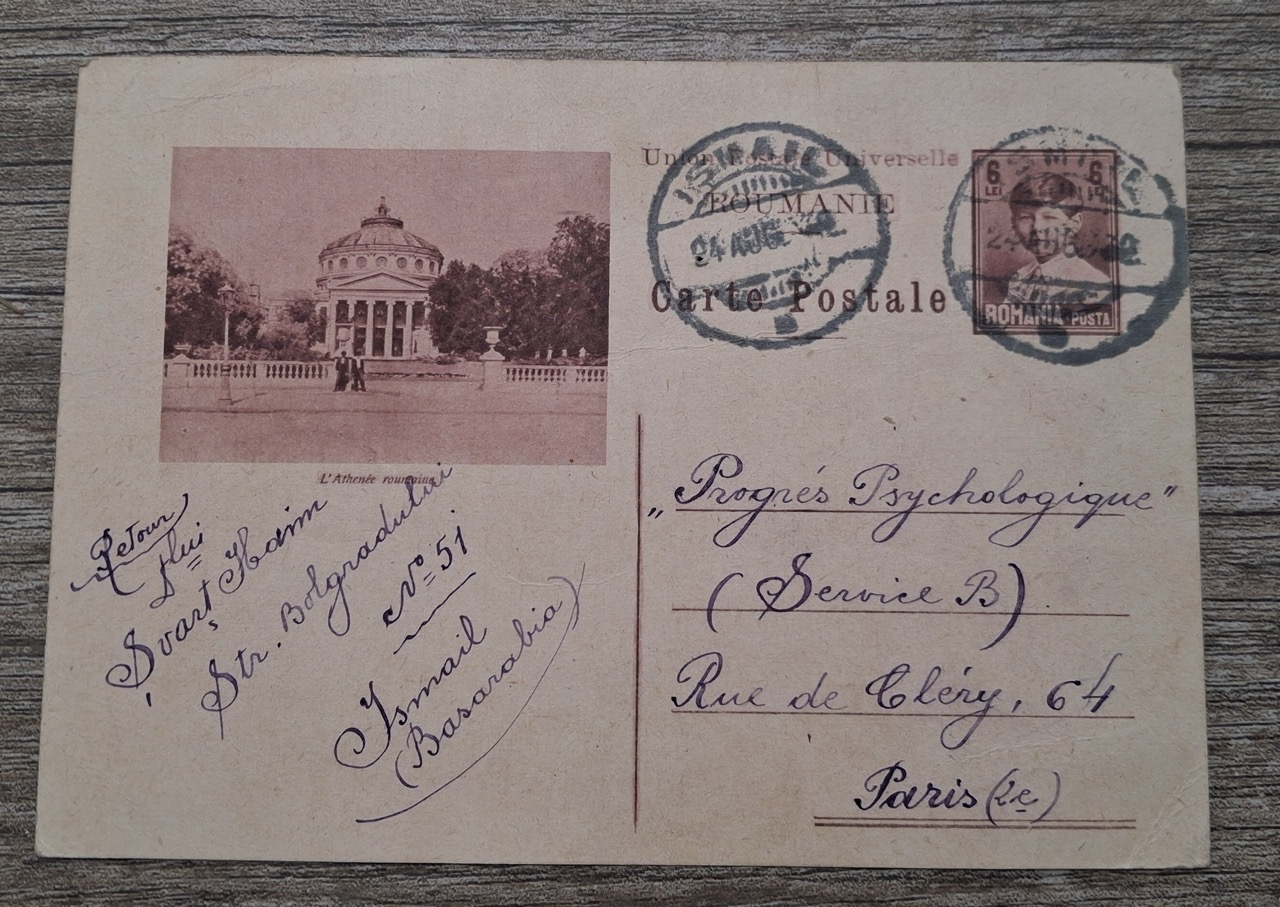 Union Postale Universelle
ROUMANIE
Carte Postale
ISMAIL
24 AUG.
6 LEI 6 LEI
ROMANIA POSTA
24 AUG
L'Athenée roumaine
Retour
Dlui
Șvarț Haim
Str. Bolgradului
No 51
Ismail
(Basarabia)
„Progrés Psychologique"
(Service B)
Rue de Cléry, 64
Paris (2e)